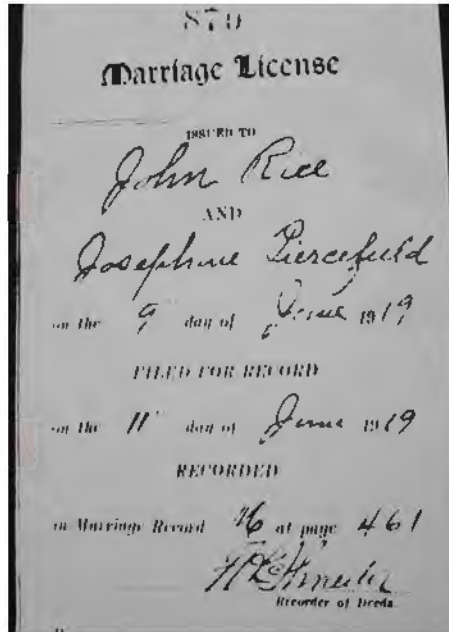 879
Marriage License
ISSUED TO
John Rice
AND
Josephine Piercefield
on the 9 day of June 1919
FILED FOR RECORD
on the 11 day of June 1919
RECORDED
in Marriage Record 16 at page 461
Recorder of Deeds